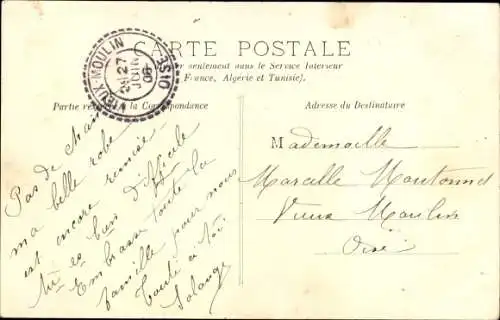 CARTE POSTALE
er seulement dans le Service Interieur
France, Algérie et Tunisie).
Partie ré à la Correspondance
Adresse du Destinataire
VIEUX-MOULIN
OISE
27
JUIN
06
Pas de
ma belle robe
est encore remisée
tu es bien difficile
Embrasse toute la
famille pour nous
Toute à toi
Solange
Mademoiselle
Marcelle Montonnet
Vieux Moulin
Oise